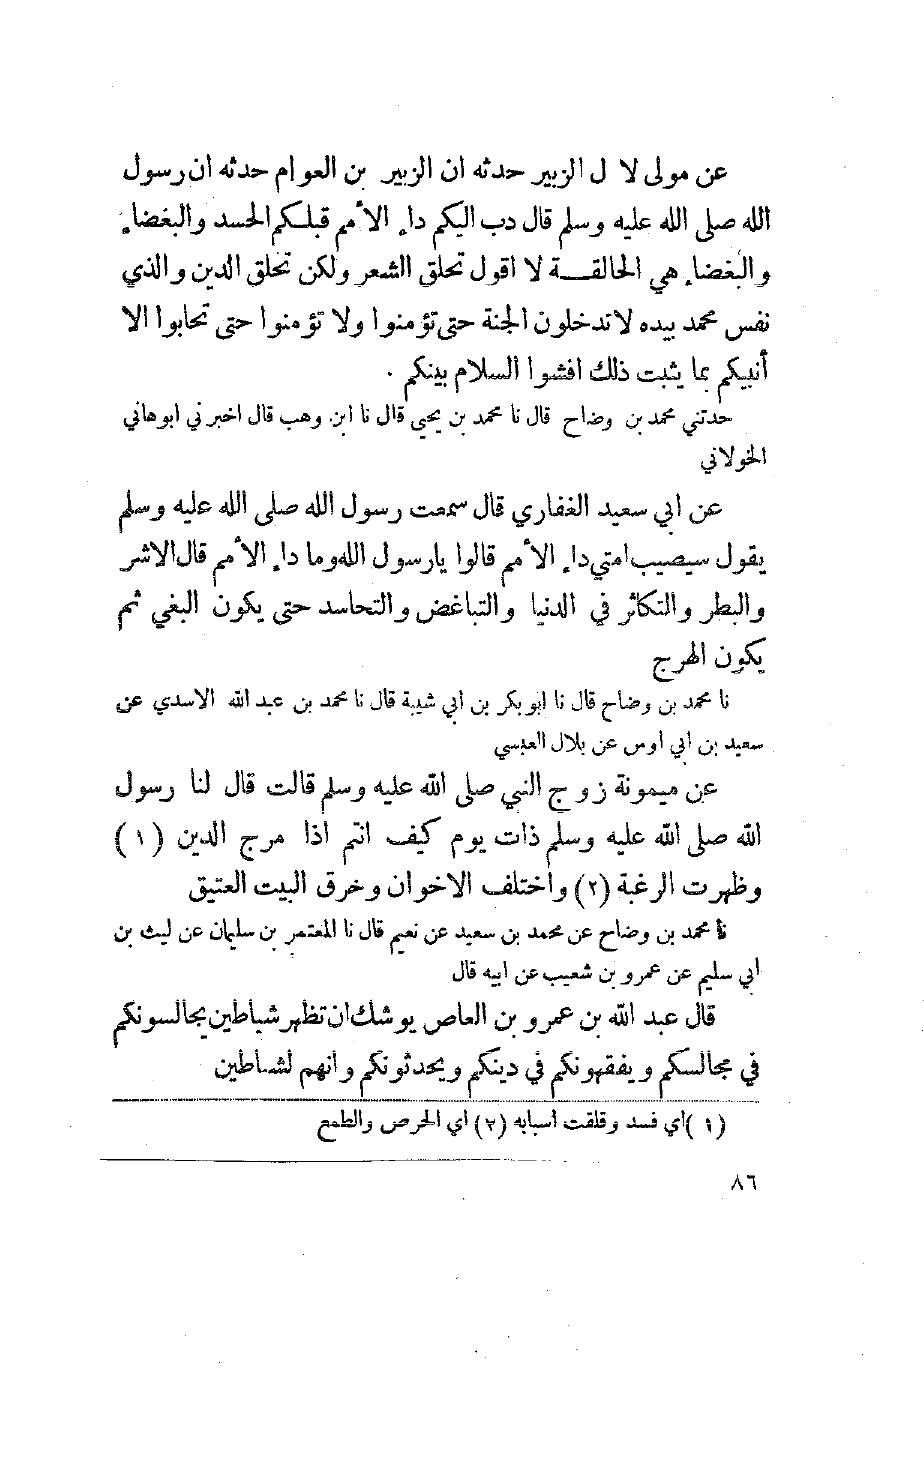 عن مولى لا ل الزبير حدثه ان الزبير بن العوام حدثه ان رسول
الله صلى الله عليه وسلم قال دب اليكم داء الأمم قبلكم الحسد والبغضاء
والبغضاء هي الحالقــة لا اقول تحلق الشعر ولكن تحلق الدين والذي
نفس محمد بيده لاتدخلون الجنة حتى تؤمنوا ولا تؤمنوا حتى تحابوا الا
أنبيكم بما يثبت ذلك افشوا السلام بينكم .
حدثني محمد بن وضاح قال نا محمد بن يحيى قال نا ابن وهب قال اخبرني ابوهاني
الخولاني
عن ابي سعيد الغفاري قال سمعت رسول الله صلى الله عليه وسلم
يقول سيصيب امتي داء الأمم قالوا يارسول الله وما داء الأمم قال الاشر
والبطر والتكاثر في الدنيا والتباغض والتحاسد حتى يكون البغي ثم
يكون الهرج
نا محمد بن وضاح قال نا ابوبكر بن ابي شيبة قال نا محمد بن عبد الله الاسدي عن
سعيد بن ابي اوس عن بلال العبسي
عن ميمونة زوج النبي صلى الله عليه وسلم قالت قال لنا رسول
الله صلى الله عليه وسلم ذات يوم كيف انتم اذا مرج الدين (١)
وظهرت الرغبة (٢) واختلف الاخوان وخرق البيت العتيق
نا محمد بن وضاح عن محمد بن سعيد عن نعيم قال نا المعتمر بن سليمان عن ليث بن
ابي سليم عن عمرو بن شعيب عن ابيه قال
قال عبد الله بن عمرو بن العاص يوشك ان تظهر شياطين يجالسونكم
في مجالسكم ويفقهونكم في دينكم ويحدثونكم وانهم لشياطين
(١) اي فسد وقلقت أسبابه (٢) اي الحرص والطمع
٨٦